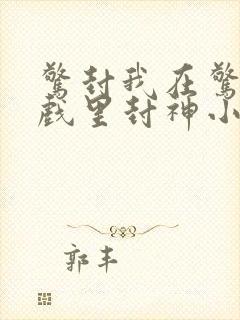 驚封我在驚
戲里封神小
郭丰